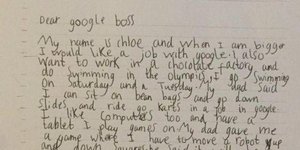 Dear google boss
My name is Chloe and when I am bigger
I would like a job with google. I also
want to work in a chocolate factory and
do swimming in the olympics. I go swimming
on Saturday and a Tuesday. My dad said
I can sit on bean bags and go down
slides and ride go karts in a job in google.
I like computers too and have a
tablet I play games on. My dad gave me
a game where I have to move a robot up
and down